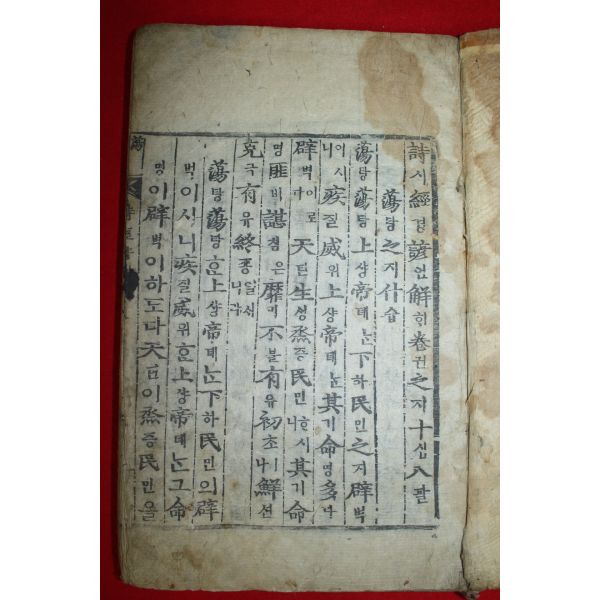 詩시經경諺언解ᄒᆡ卷권之지十십八팔
蕩탕之지什습
蕩탕蕩탕上샹帝뎨下하民민之지辟벽
이시니疾질威위上샹帝뎨ᄂᆞᆫ其기命명多다
辟벽이로다天텬生ᄉᆡᆼ烝증民민ᄒᆞ시나其기命
명匪비諶심은靡미不블有유初초ㅣ나鮮션
克극有유終죵일ᄉᆡ니라
蕩탕蕩탕ᄒᆞᆫ上샹帝뎨ᄂᆞᆫ下하民민의辟
벽이시니疾질威위ᄒᆞᆫ上샹帝뎨ᄂᆞᆫ그命
명이辟벽이하도다天텬이烝증民민을